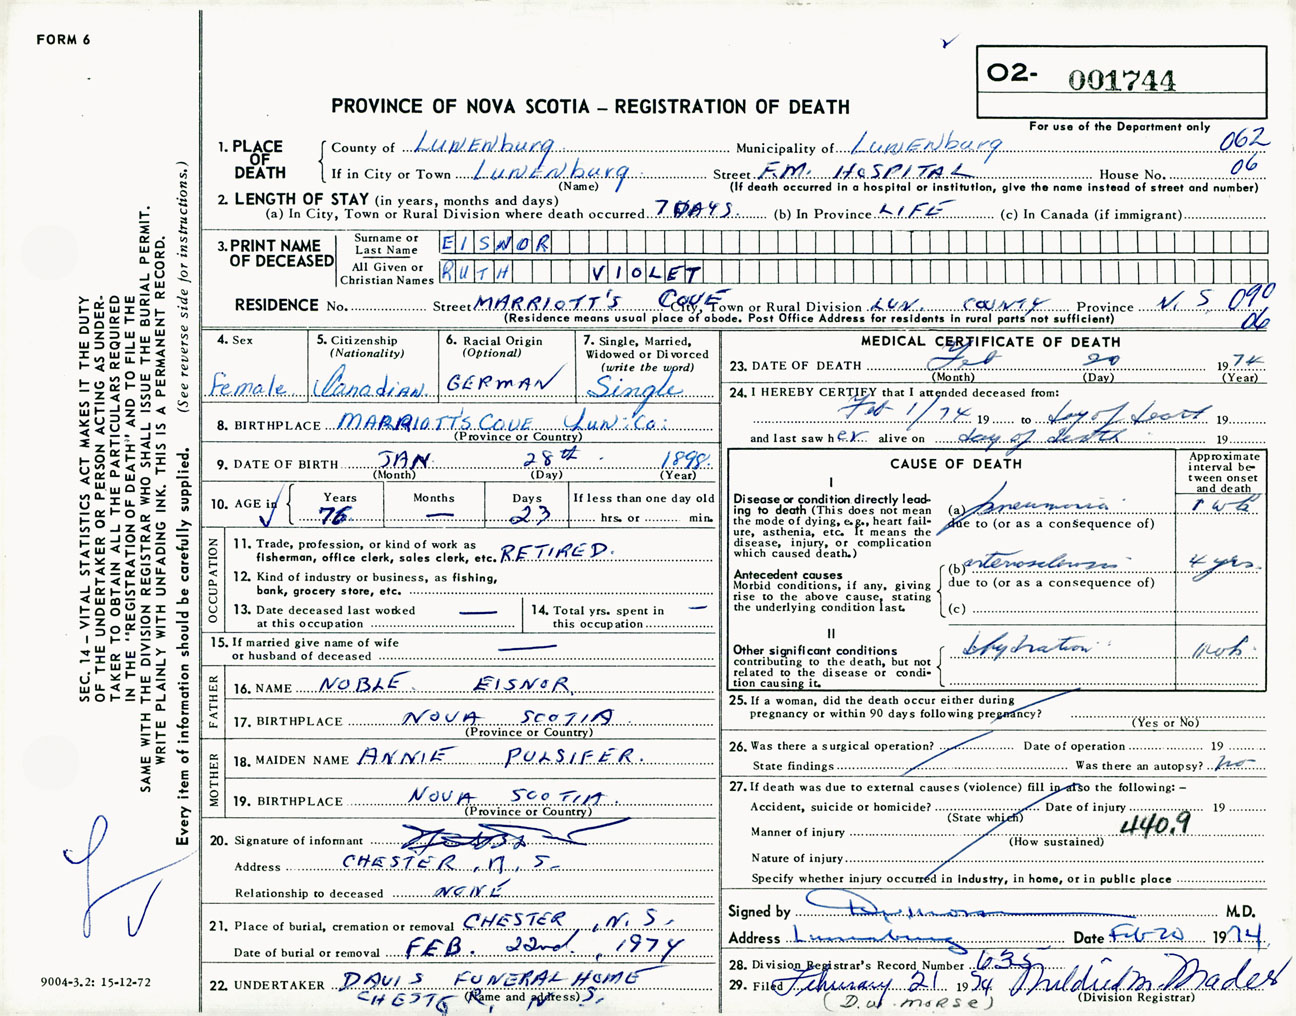 FORM 6
O2- 001744
PROVINCE OF NOVA SCOTIA – REGISTRATION OF DEATH
For use of the Department only
062
06
1. PLACE OF DEATH
County of Lunenburg Municipality of Lunenburg
If in City or Town Lunenburg Street F.M. HOSPITAL House No.
(Name) (If death occurred in a hospital or institution, give the name instead of street and number)
2. LENGTH OF STAY (in years, months and days)
(a) In City, Town or Rural Division where death occurred 7 DAYS. (b) In Province LIFE (c) In Canada (if immigrant)
3. PRINT NAME OF DECEASED
Surname or Last Name EISNOR
All Given or Christian Names RUTH VIOLET
RESIDENCE No. Street MARRIOTT'S COVE City, Town or Rural Division LUN. COUNTY Province N.S. 090
06
(Residence means usual place of abode. Post Office Address for residents in rural parts not sufficient)
4. Sex
Female
5. Citizenship
(Nationality)
Canadian.
6. Racial Origin
(Optional)
GERMAN
7. Single, Married,
Widowed or Divorced
(write the word)
Single
8. BIRTHPLACE MARRIOTT'S COVE Lun. Co.
(Province or Country)
9. DATE OF BIRTH JAN. 28th 1898.
(Month) (Day) (Year)
10. AGE in
Years Months Days If less than one day old
76 — 23 hrs. or min.
OCCUPATION
11. Trade, profession, or kind of work as
fisherman, office clerk, sales clerk, etc. RETIRED.
12. Kind of industry or business, as fishing,
bank, grocery store, etc.
13. Date deceased last worked
at this occupation —
14. Total yrs. spent in
this occupation —
15. If married give name of wife
or husband of deceased —
FATHER
16. NAME NOBLE EISNOR.
17. BIRTHPLACE NOVA SCOTIA.
(Province or Country)
MOTHER
18. MAIDEN NAME ANNIE PULSIFER.
19. BIRTHPLACE NOVA SCOTIA.
(Province or Country)
20. Signature of informant
Address CHESTER, N.S.
Relationship to deceased NONE
21. Place of burial, cremation or removal CHESTER, N.S.
Date of burial or removal FEB. 22nd, 1974
22. UNDERTAKER DAVIS FUNERAL HOME
CHESTER, N.S.
(Name and address)
MEDICAL CERTIFICATE OF DEATH
23. DATE OF DEATH Feb 20 1974
(Month) (Day) (Year)
24. I HEREBY CERTIFY that I attended deceased from:
Feb 1/74 19 to day of death 19
and last saw her alive on day of death 19
CAUSE OF DEATH
Approximate interval between onset and death
I
Disease or condition directly leading to death (This does not mean the mode of dying, e.g., heart failure, asthenia, etc. It means the disease, injury, or complication which caused death.)
(a) pneumonia 1 wk
due to (or as a consequence of)
Antecedent causes
Morbid conditions, if any, giving rise to the above cause, stating the underlying condition last.
(b) arterosclerosis 4 yrs.
due to (or as a consequence of)
(c)
II
Other significant conditions
contributing to the death, but not related to the disease or condition causing it.
dehydration 1 wk.
25. If a woman, did the death occur either during
pregnancy or within 90 days following pregnancy?
(Yes or No)
26. Was there a surgical operation? Date of operation 19
State findings Was there an autopsy? no
27. If death was due to external causes (violence) fill in also the following: –
Accident, suicide or homicide? Date of injury 19
(State which)
Manner of injury 440.9
(How sustained)
Nature of injury
Specify whether injury occurred in industry, in home, or in public place
Signed by M.D.
Address Lunenburg Date Feb 20 1974.
28. Division Registrar's Record Number 635
29. Filed February 21 1974 Mildred M. Mader
(D.W. MORSE) (Division Registrar)
SEC. 14 – VITAL STATISTICS ACT MAKES IT THE DUTY
OF THE UNDERTAKER OR PERSON ACTING AS UNDER-
TAKER TO OBTAIN ALL THE PARTICULARS REQUIRED
IN THE "REGISTRATION OF DEATH" AND TO FILE THE
SAME WITH THE DIVISION REGISTRAR WHO SHALL ISSUE THE BURIAL PERMIT.
WRITE PLAINLY WITH UNFADING INK. THIS IS A PERMANENT RECORD.
Every item of information should be carefully supplied. (See reverse side for instructions.)
9004-3.2: 15-12-72